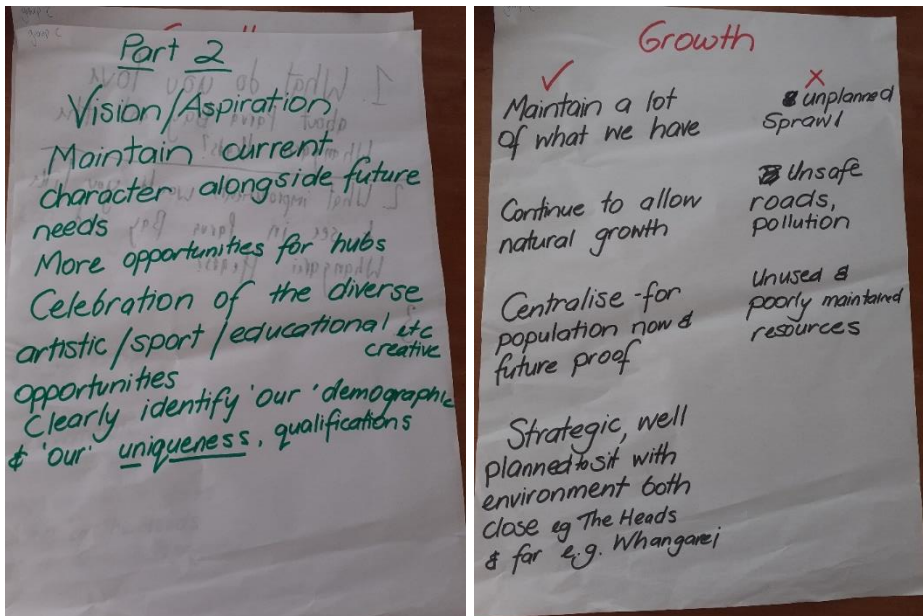 Part 2
Vision/Aspiration
Maintain current
character alongside future
needs
More opportunities for hubs
Celebration of the diverse
artistic/sport/educational etc
creative
opportunities
Clearly identify 'our' demographic
& 'our' uniqueness, qualifications
Growth
✓
Maintain a lot
of what we have
Continue to allow
natural growth
Centralise - for
population now &
future proof
Strategic, well
planned to sit with
environment both
close eg The Heads
& far e.g. Whangarei
x
unplanned
Sprawl
Unsafe
roads,
pollution
Unused &
poorly maintained
resources